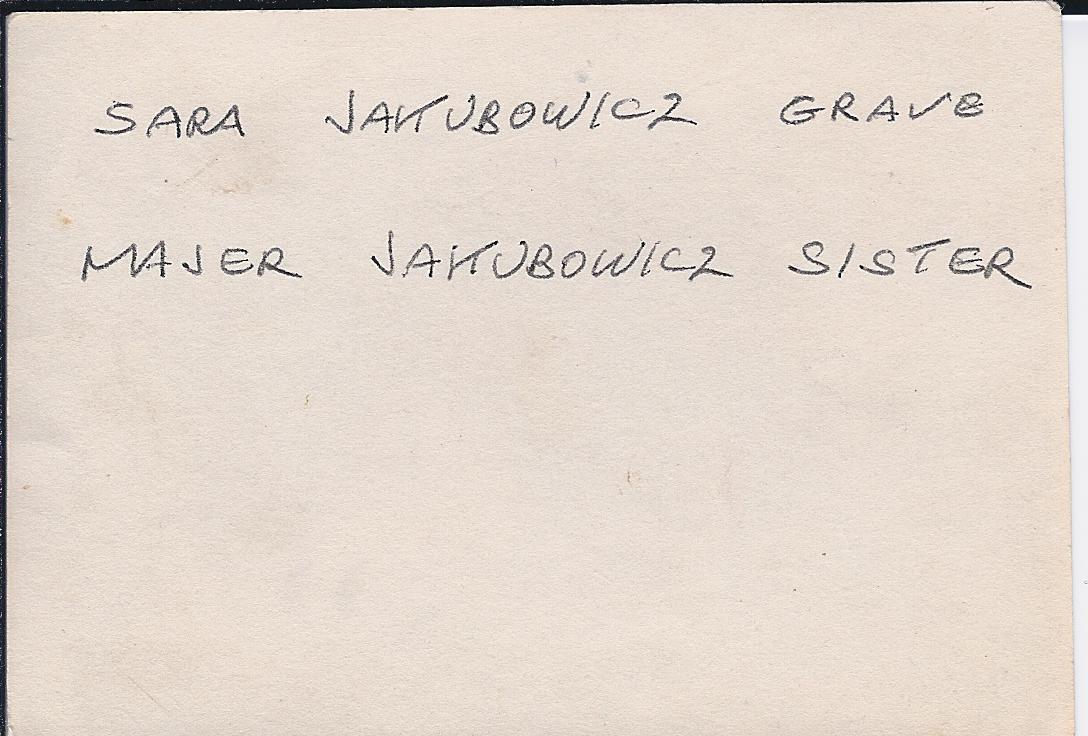 SARA JAKUBOWICZ GRAVE
MAJER JAKUBOWICZ SISTER